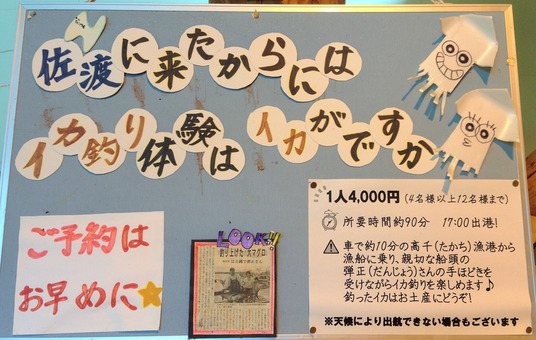 佐渡に来たからには
イカ釣り体験は イカがですか
ご予約は
お早めに
LOOK!!
釣り上げた大マグロ
1人4,000円 (4名様以上12名様まで)
所要時間約90分 17:00出港!
車で約10分の高千(たかち)漁港から
漁船に乗り、親切な船頭の
弾正(だんじょう)さんの手ほどきを
受けながらイカ釣りを楽しめます♪
釣ったイカはお土産にどうぞ!
※天候により出航できない場合もございます